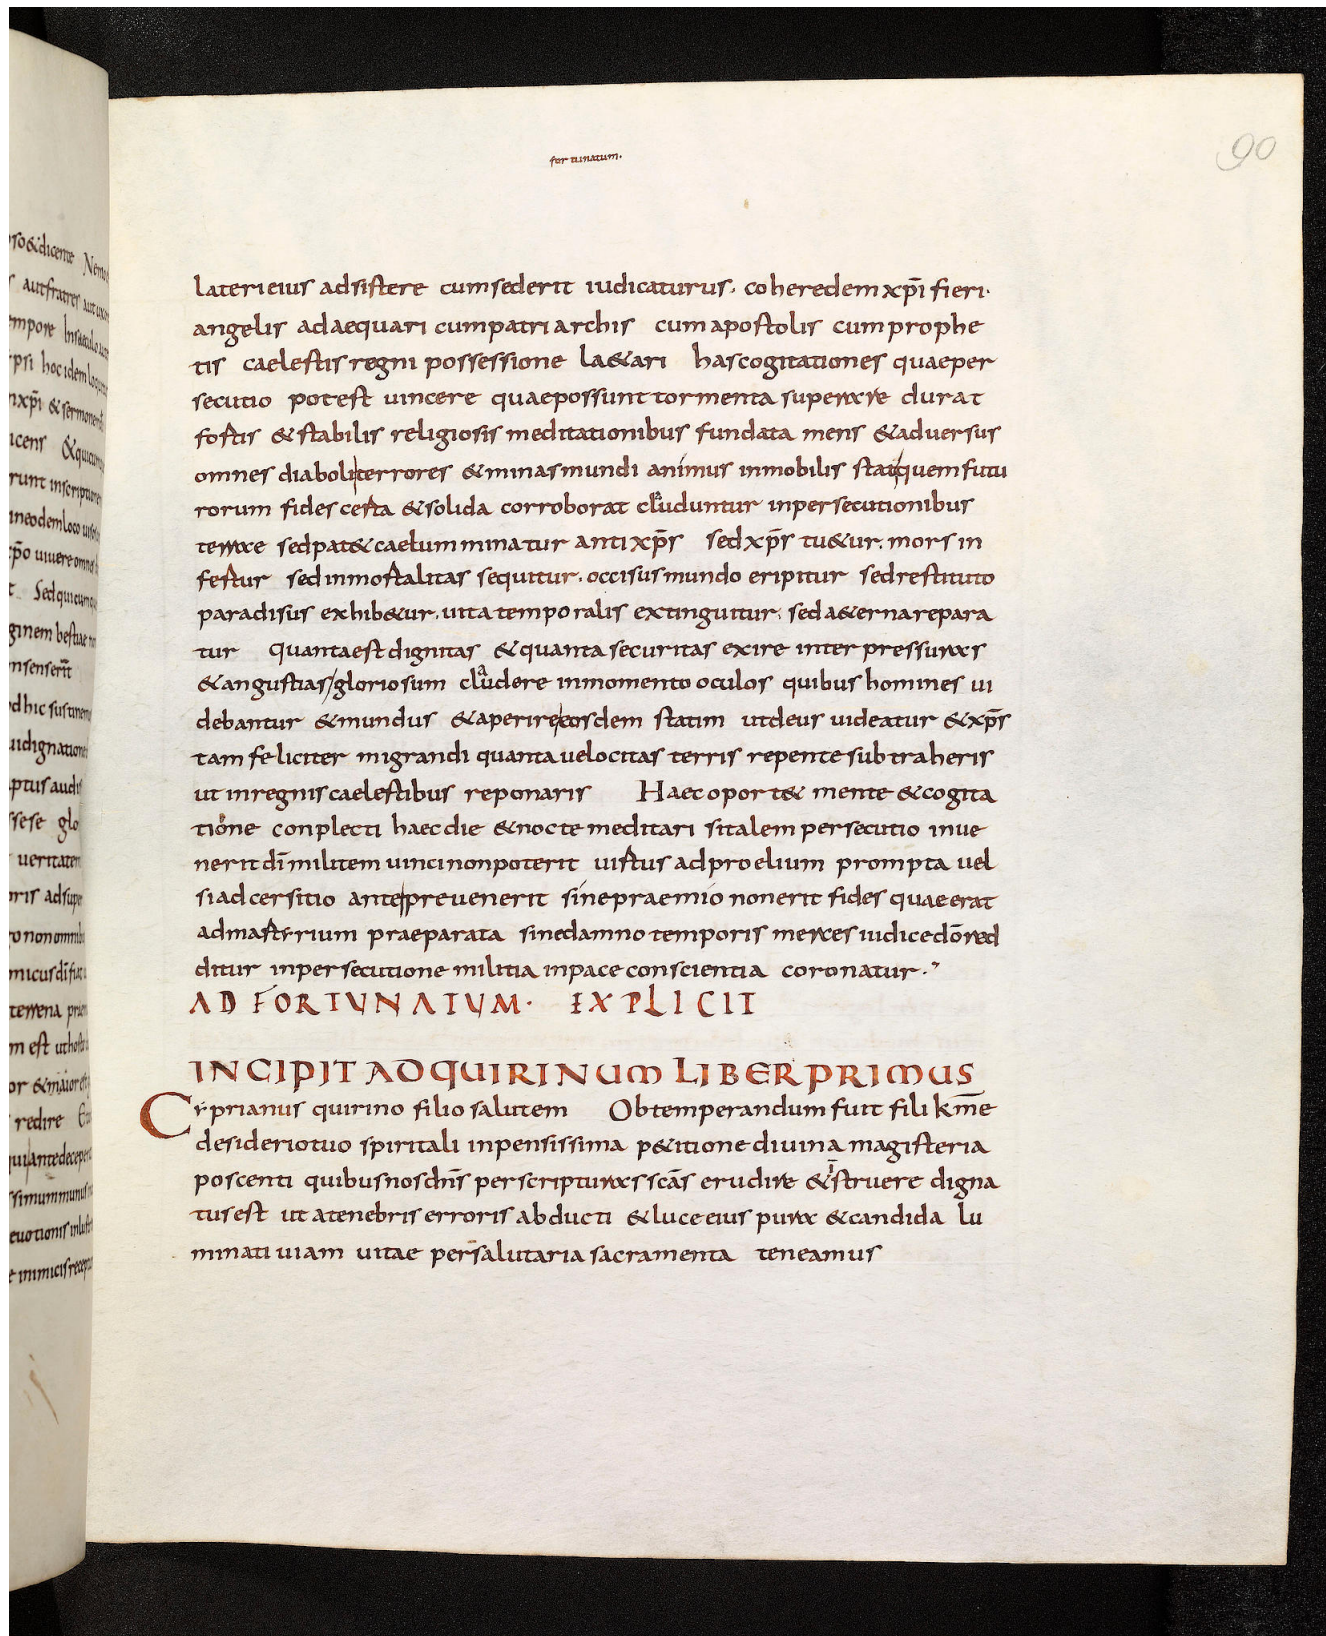 fortunatum.
90
lateri eius adsistere cum sederit iudicaturus. coheredem xp̄i fieri.
angelis adaequari cum patriarchis cum apostolis cum prophe
tis caelestis regni possessione la&ari has cogitationes quae per
secutio potest uincere quae possunt tormenta superare durat
fortis & stabilis religiosis meditationibus fundata mens & aduersus
omnes diaboli terrores & minas mundi animus inmobilis stat quem futu
rorum fides certa & solida corroborat clauduntur in persecutionibus
terrae sed pat& caelum minatur antixp̄s sed xp̄s tu&ur. mors in
fertur sed inmortalitas sequitur. occisus mundo eripitur sed restituto
paradisus exhib&ur. uita temporalis extinguitur. sed a&erna repara
tur quanta est dignitas & quanta securitas exire inter pressuras
& angustias gloriosum claudere in momento oculos quibus homines ui
debantur & mundus & aperire eosdem statim ut deus uideatur & xp̄s
tam feliciter migrandi quanta uelocitas terris repente subtraheris
ut in regnis caelestibus reponaris Haec oport& mente & cogita
tione conplecti haec die & nocte meditari si talem persecutio inue
nerit dī militem uinci non poterit uirtus ad proelium prompta uel
si adcersitio ante preuenerit sine praemio non erit fides quae erat
ad marterium praeparata sine damno temporis merces iudice dō red
ditur in persecutione militia in pace conscientia coronatur.
AD FORTUNATUM. EXPLICIT
INCIPIT AD QUIRINUM LIBER PRIMUS
Cyprianus quirino filio salutem Obtemperandum fuit fili km̄e
desiderio tuo spiritali inpensissima p&itione diuina magisteria
poscenti quibus nos dn̄s per scripturas scās erudire & īstruere digna
tus est ut a tenebris erroris abducti & luce eius pura & candida lu
minati uiam uitae per salutaria sacramenta teneamus